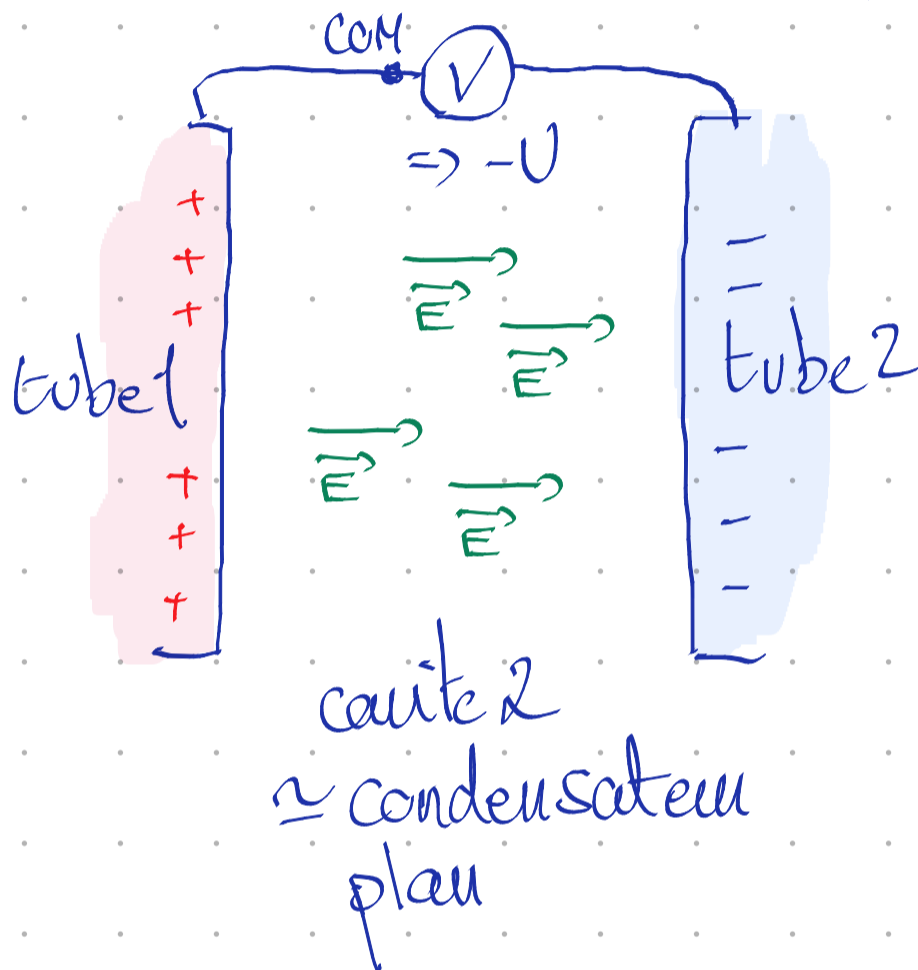 COM
V
=> -U
+
+
+
-
-
E
E
tube1
tube2
E
E
+
+
+
-
-
-
cavité 2
≃ condensateur
plan